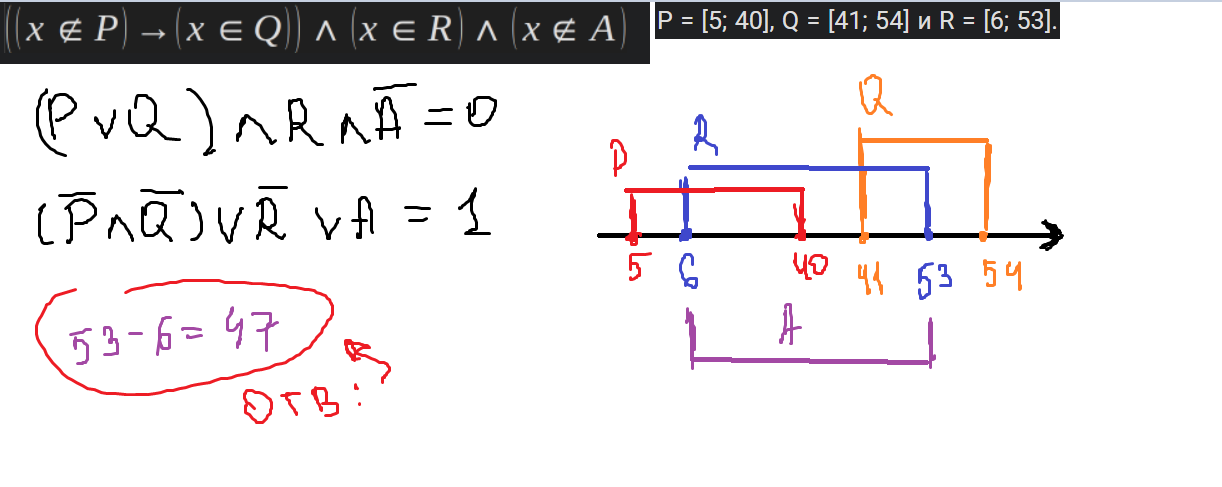 ((x ∉ P) → (x ∈ Q)) ∧ (x ∈ R) ∧ (x ∉ A)
P = [5; 40], Q = [41; 54] и R = [6; 53].
(P ∨ Q) ∧ R ∧ A̅ = 0
(P̅ ∧ Q̅) ∨ R̅ ∨ A = 1
53 - 6 = 47
ОТВ:
Q
R
P
5 6 40 41 53 54
A